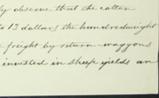 ly observe that the cotton
to 12 dollars the hundredweight
freight by return waggons
invested in sheep yields an